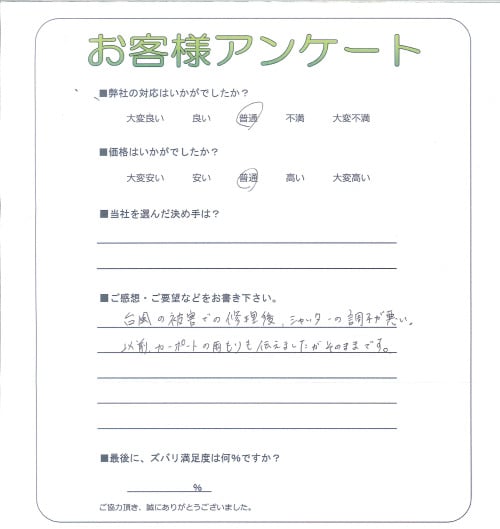 お客様アンケート
■弊社の対応はいかがでしたか？
大変良い 良い 普通 不満 大変不満
■価格はいかがでしたか？
大変安い 安い 普通 高い 大変高い
■当社を選んだ決め手は？
■ご感想・ご要望などをお書き下さい。
台風の被害での修理後、シャッターの調子が悪い。
以前、カーポートの雨もりも伝えましたがそのままです。
■最後に、ズバリ満足度は何%ですか？
%
ご協力頂き、誠にありがとうございました。